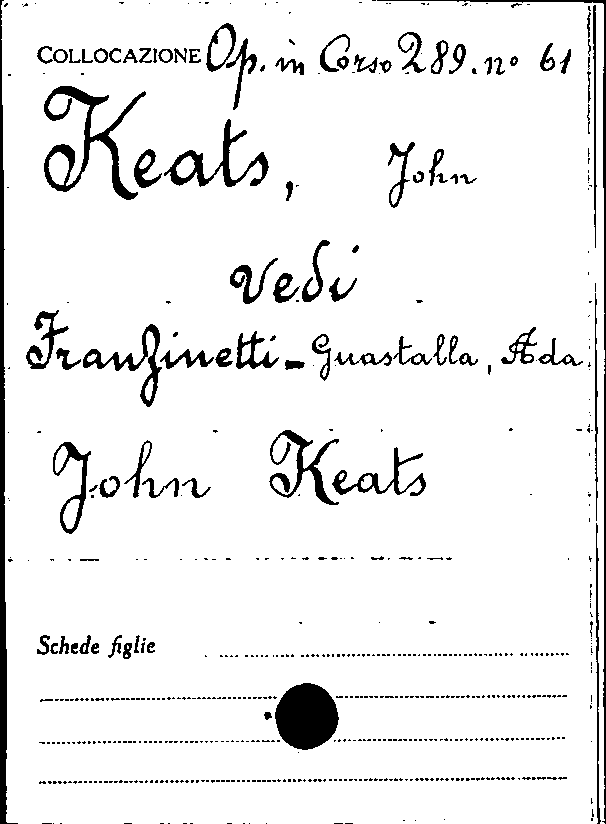 COLLOCAZIONE Op. in Corso 289. n° 61
Keats, John
Vedi
Franzinetti-Guastalla, Ada.
John Keats
Schede figlie